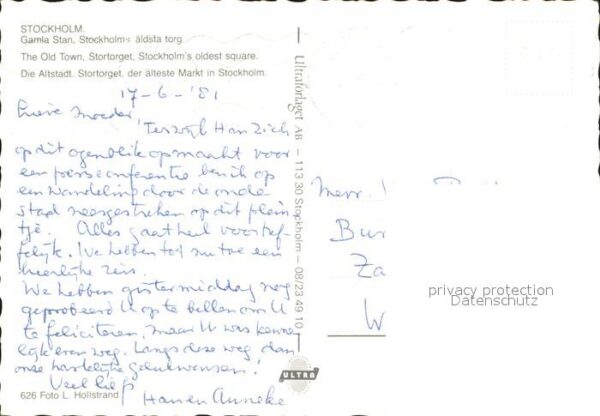 STOCKHOLM.
Gamla Stan, Stockholms äldsta torg
The Old Town, Stortorget, Stockholm's oldest square.
Die Altstadt. Stortorget, der älteste Markt in Stockholm.
17-6-'81
Lieve Moeder,
Terwijl Han zich
op dit ogenblik opmaakt voor
een persconferentie ben ik op
een wandeling door de oude
stad neergestreken op dit plein
tje. Alles gaat heel voortref
felijk. We hebben tot nu toe een
heerlijke reis.
We hebben gistermiddag nog
geprobeerd U op te bellen om U
te feliciteren, maar U was kenne
lijk even weg. Langs deze weg dan
onze hartelijke gelukwensen!
Veel liefs
Han en Anneke
626 Foto L. Hollstrand
Ultraförlaget AB - 113 30 Stockholm - 08/23 49 10
ULTRA
Mevr.
Bur
Za
W
privacy protection
Datenschutz